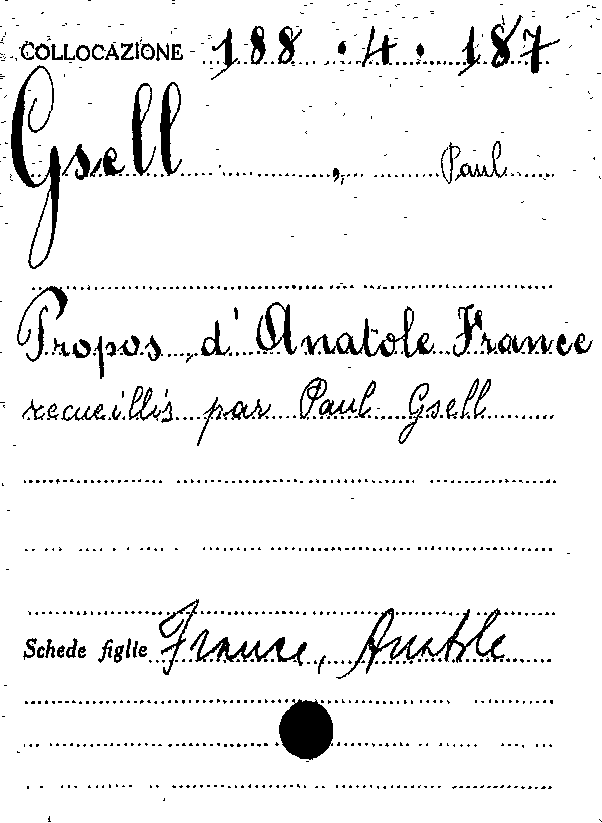 COLLOCAZIONE 188 . 4 . 187
Gsell , Paul
Propos d' Anatole France
recueillis par Paul Gsell
Schede figlie France, Anatole